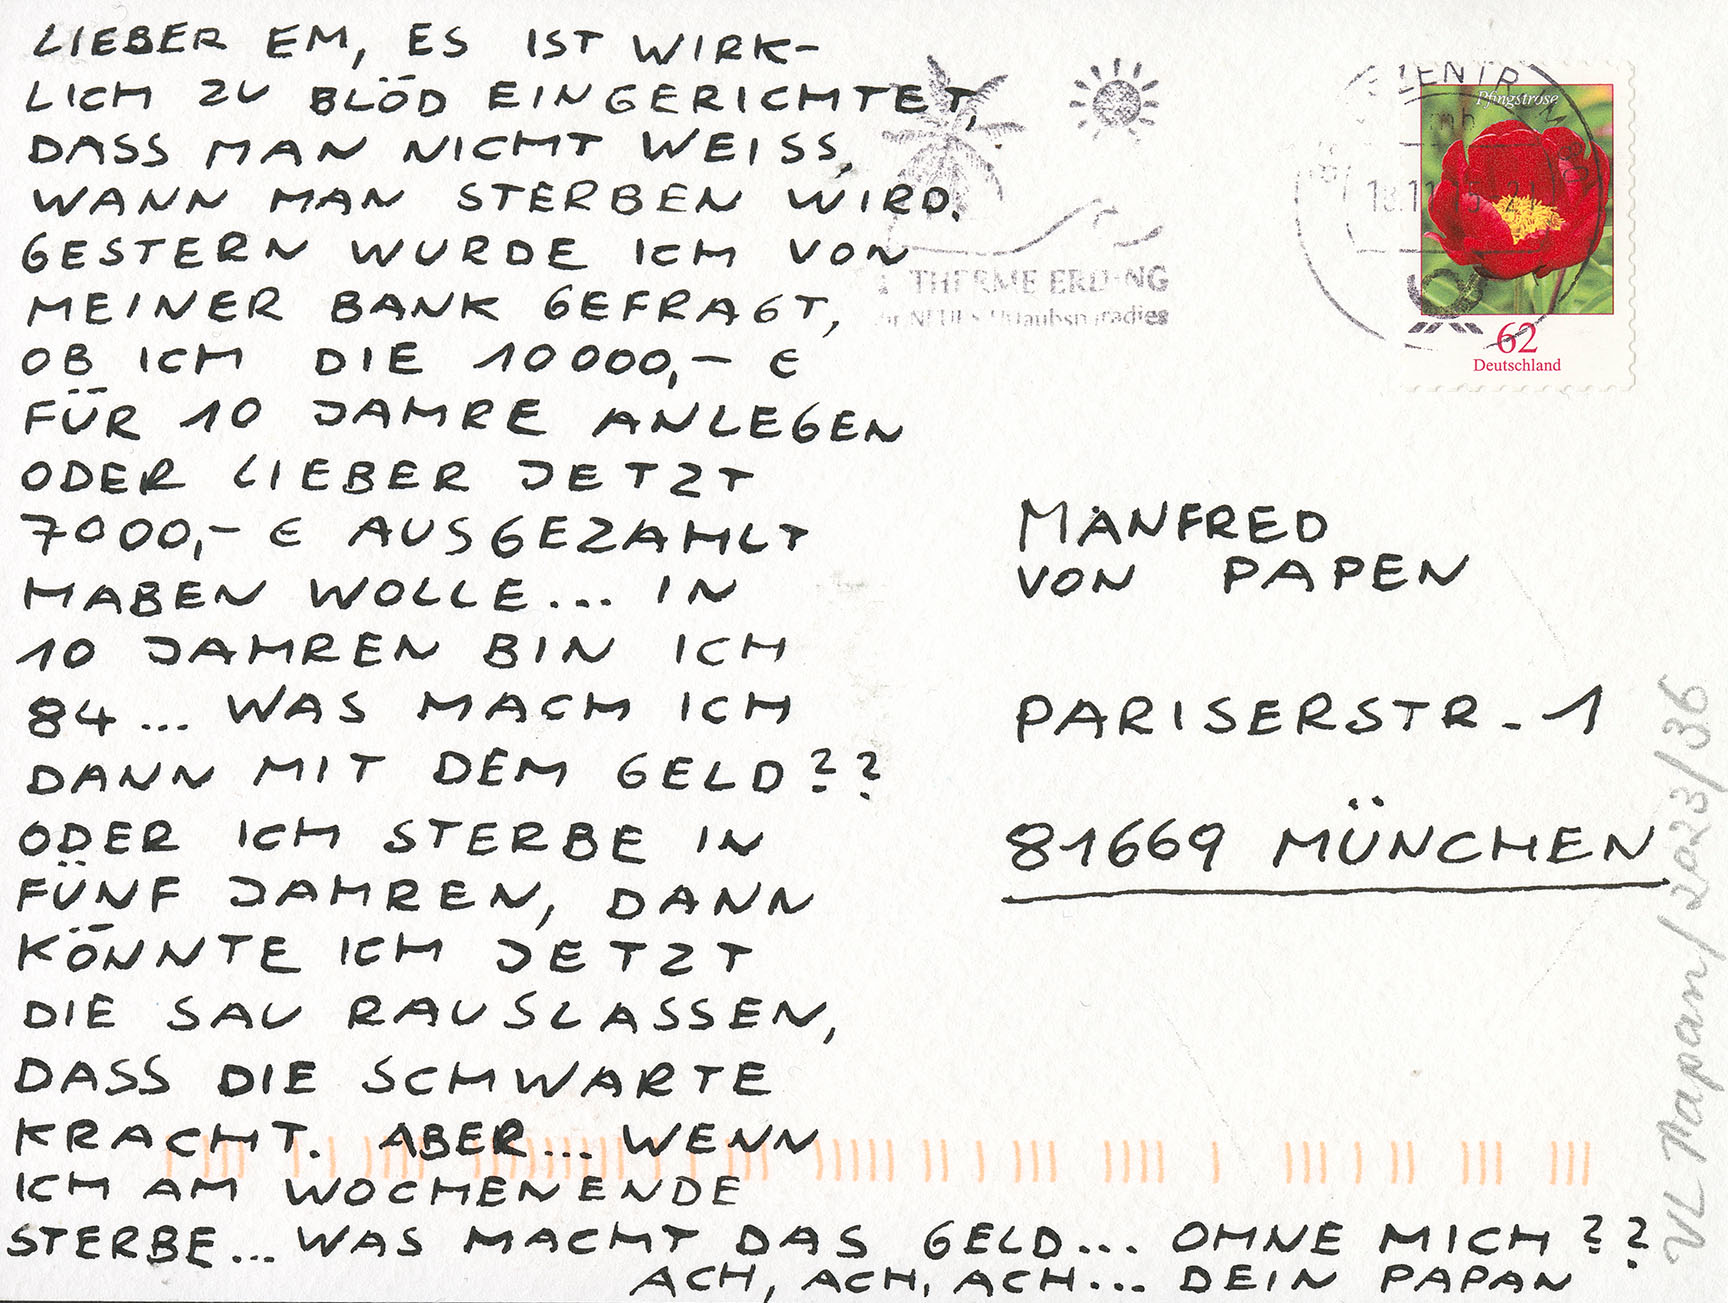 LIEBER EM, ES IST WIRK-
LICH ZU BLÖD EINGERICHTET,
DASS MAN NICHT WEISS,
WANN MAN STERBEN WIRD.
GESTERN WURDE ICH VON
MEINER BANK GEFRAGT,
OB ICH DIE 10000,- €
FÜR 10 JAHRE ANLEGEN
ODER LIEBER JETZT
7000,- € AUSGEZAHLT
HABEN WOLLE... IN
10 JAHREN BIN ICH
84... WAS MACH ICH
DANN MIT DEM GELD??
ODER ICH STERBE IN
FÜNF JAHREN, DANN
KÖNNTE ICH JETZT
DIE SAU RAUSLASSEN,
DASS DIE SCHWARTE
KRACHT. ABER... WENN
ICH AM WOCHENENDE
STERBE... WAS MACHT DAS GELD... OHNE MICH??
ACH, ACH, ACH... DEIN PAPAN
THERME ERDING
Urlaubsparadies
Pfingstrose
62
Deutschland
MANFRED
VON PAPEN
PARISERSTR. 1
81669 MÜNCHEN
VL Papan/2023/36